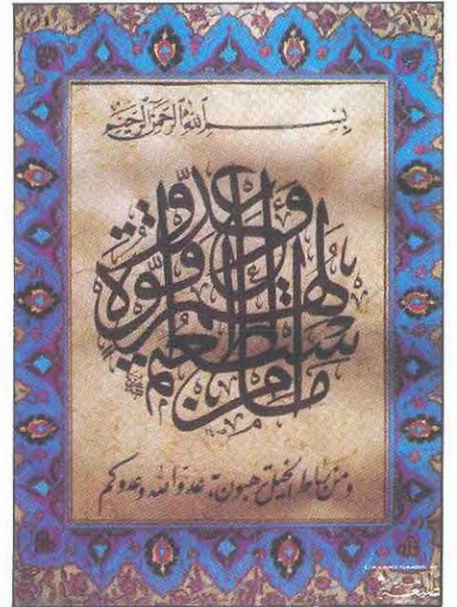 بسم الله الرحمن الرحيم
وأعدوا لهم ما استطعتم من قوة
ومن رباط الخيل ترهبون به عدو الله وعدوكم